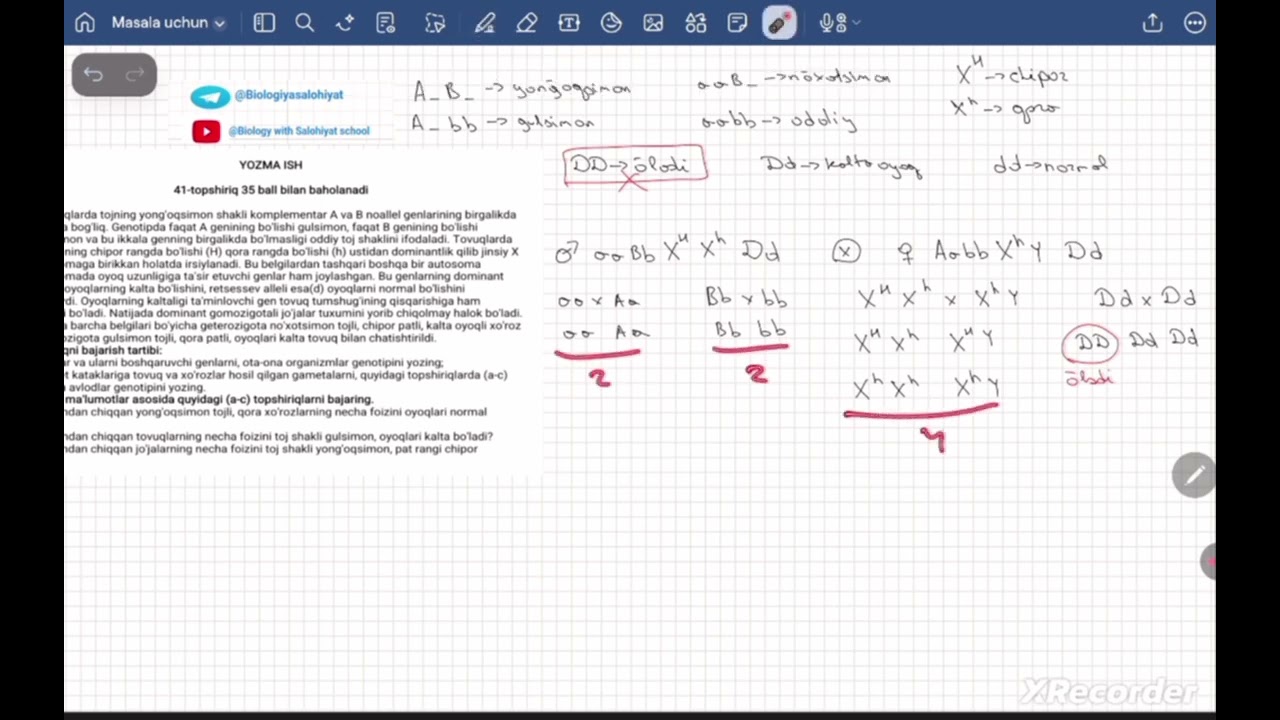 Masala uchun
@Biologiyasalohiyat
@Biology with Salohiyat school
A_B_ → yong'oqsimon
A_bb → gulsimon
aaB_ → no'xotsimon
aabb → oddiy
X^H → chipor
X^h → qora
DD → o'ladi
Dd → kalta oyoq
dd → normal
YOZMA ISH
41-topshiriq 35 ball bilan baholanadi
qlarda tojning yong'oqsimon shakli komplementar A va B noallel genlarining birgalikda
bog'liq. Genotipda faqat A genining bo'lishi gulsimon, faqat B genining bo'lishi
mon va bu ikkala genning birgalikda bo'lmasligi oddiy toj shaklini ifodaladi. Tovuqlarda
ning chipor rangda bo'lishi (H) qora rangda bo'lishi (h) ustidan dominantlik qilib jinsiy X
maga birikkan holatda irsiylanadi. Bu belgilardan tashqari boshqa bir autosoma
mada oyoq uzunligiga ta'sir etuvchi genlar ham joylashgan. Bu genlarning dominant
oyoqlarning kalta bo'lishini, retsessev alleli esa(d) oyoqlarni normal bo'lishini
di. Oyoqlarning kaltaligi ta'minlovchi gen tovuq tumshug'ining qisqarishiga ham
bo'ladi. Natijada dominant gomozigotali jo'jalar tuxumini yorib chiqolmay halok bo'ladi.
barcha belgilari bo'yicha geterozigota no'xotsimon tojli, chipor patli, kalta oyoqli xo'roz
ozigota gulsimon tojli, qora patli, oyoqlari kalta tovuq bilan chatishtirildi.
qni bajarish tartibi:
ar va ularni boshqaruvchi genlarni, ota-ona organizmlar genotipini yozing;
t kataklariga tovuq va xo'rozlar hosil qilgan gametalarni, quyidagi topshiriqlarda (a-c)
avlodlar genotipini yozing.
ma'lumotlar asosida quyidagi (a-c) topshiriqlarni bajaring.
ndan chiqqan yong'oqsimon tojli, qora xo'rozlarning necha foizini oyoqlari normal
ndan chiqqan tovuqlarning necha foizini toj shakli gulsimon, oyoqlari kalta bo'ladi?
ndan chiqqan jo'jalarning necha foizini toj shakli yong'oqsimon, pat rangi chipor
♂ aaBb X^H X^h Dd ⊗ ♀ Aabb X^h Y Dd
aa x Aa Bb x bb X^H X^h x X^h Y Dd x Dd
aa Aa Bb bb X^H X^h X^H Y DD Dd Dd
2 2 X^h X^h X^h Y o'ladi
4
XRecorder